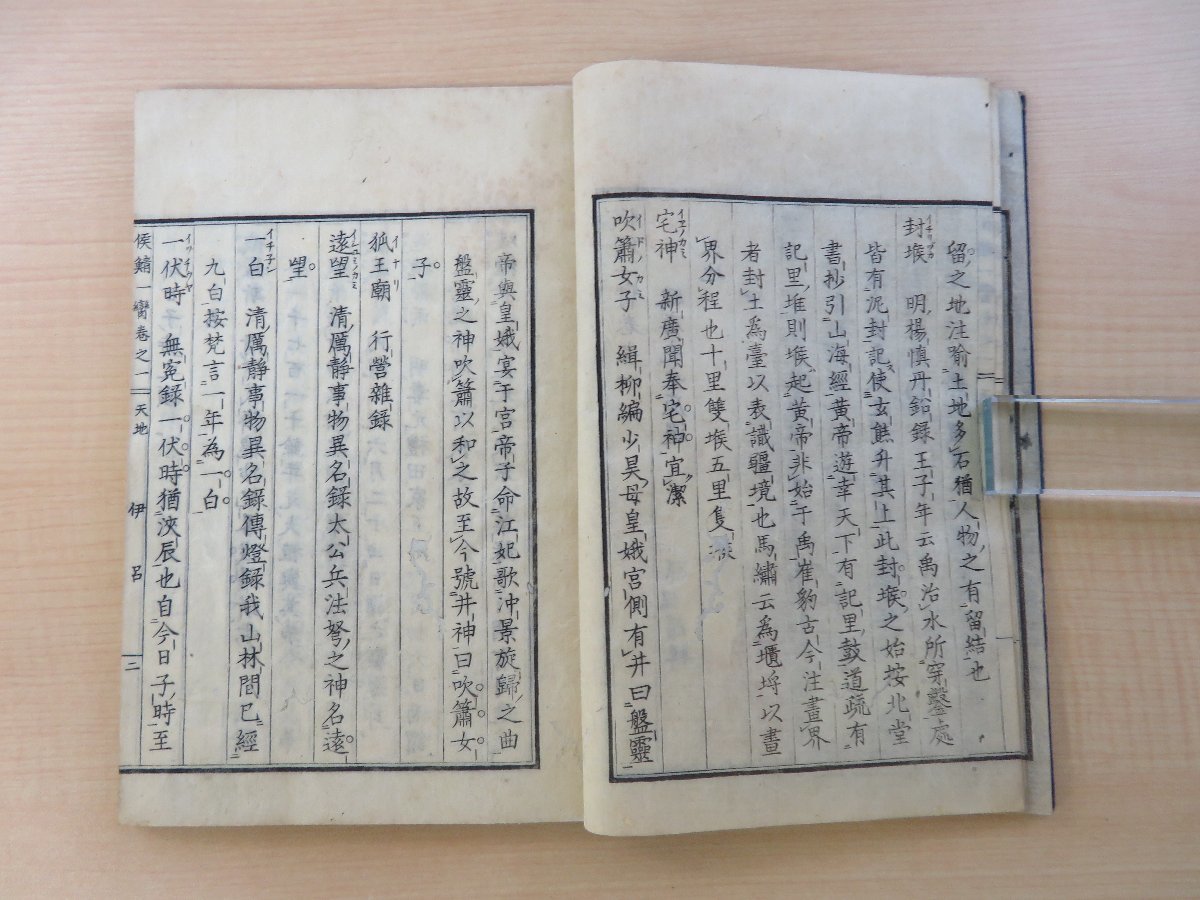 留之地注瑜土地多石猶人物之有留結也
封堠 明楊慎丹鉛録王子年云禹治水所穿鑿處
皆有泥封記使玄熊升其上此封堠之始按北堂
書抄引山海經黄帝遊幸天下有記里鼓道疏有
記里堆則堠起黄帝非始于禹崔豹古今注畫界
者封土爲臺以表識疆境也馬縞云爲堳埒以畫
界分程也十里雙堠五里隻堠
宅神 新廣聞奉宅神宜潔
吹簫女子 緝柳編少昊母皇娥宮側有井曰盤靈
帝與皇娥宴于宮帝子命江妃歌沖景旋歸之曲
盤靈之神吹簫以和之故至今號井神曰吹簫女
子
狐王廟 行營雜録
遠望 清厲靜事物異名録太公兵法弩之神名遠
望
一白 清厲靜事物異名録傳燈録我山林間已經
九白按梵言一年為一白
一伏時 無寃録一伏時猶浹辰也自今日子時至
侯鯖一臠卷之一 天地 伊呂 二